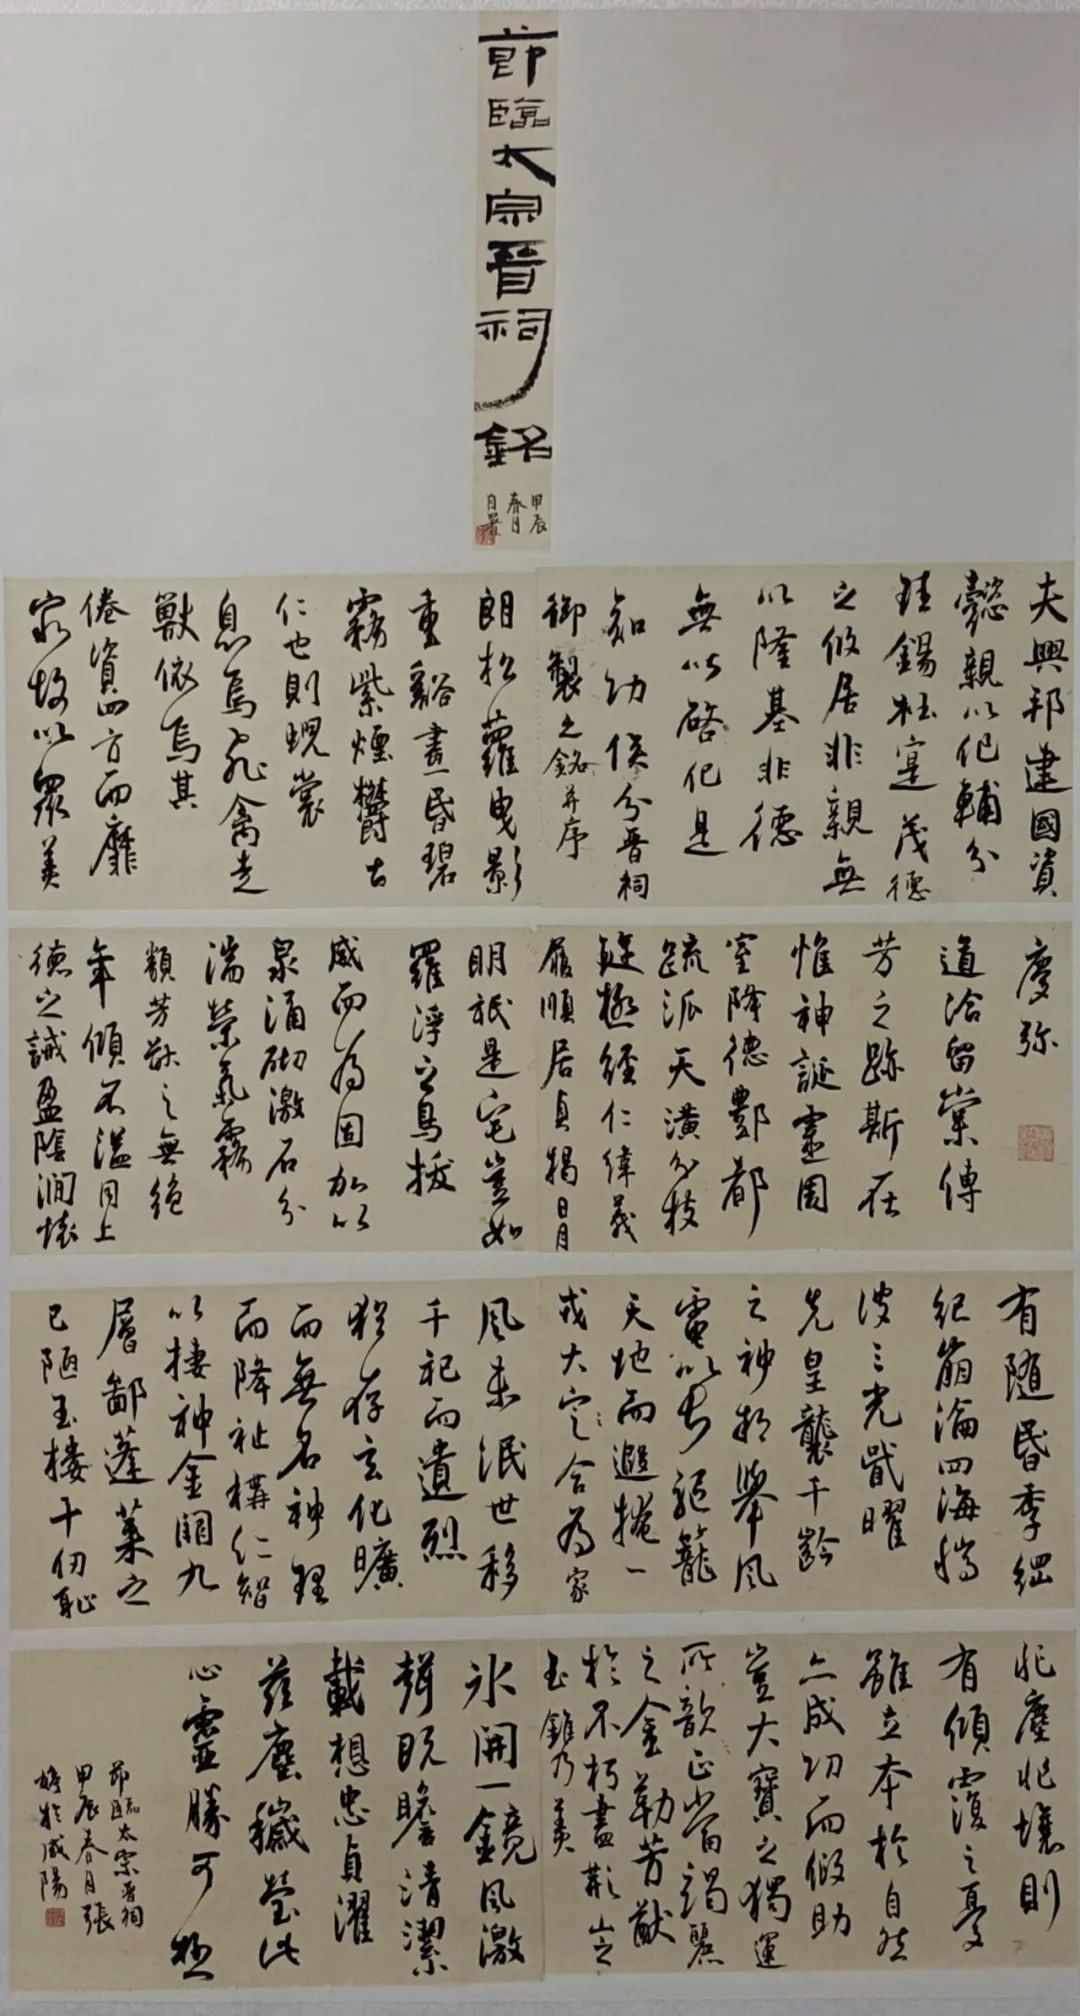 節臨太宗晉祠銘
甲辰
春月
自署
夫興邦建國資
懿親以作輔分
珪錫社寔茂德
之攸居非親無
以隆基非德
無以啓化是
知功侔分晉祠
御製之銘并序
朗松蘿曳影
重谿晝昏碧
霧紫煙鬱古
仁也則現裳
息焉飛禽走
獸依焉其
倦資四方而靡
窮故以眾美
慶弥
道洽留棠傳
芳之跡斯在
惟神誕靈周
室降德酆都
疏派天潢分枝
璇極經仁緯義
履順居貞揭日月
明祇是宅豈如
羅浮之島拔
威而為固加以
泉涌砌激石分
湍縈氣霧
類芳猷之無絕
年傾不溢同上
德之誡盈陰澗懷
有隨昏季綱
紀崩淪四海騰
波三光戢曜
先皇襲千齡
之神挺舉風
電以長驅籠
天地而遐捲一
戎大定六合為家
風未泯世移
千祀而遺烈
猶存玄化曠
而無名神理
而降祉構仁智
以棲神金闕九
層鄙蓬萊之
已陋玉樓十仞恥
非塵非壤則
有傾覆之憂
雖立本於自然
亦成功而假助
豈大寶之獨運
所歆正當竭麗
之金勒芳猷
於不朽盡荊山之
玉錐乃美
冰開一鏡風激
聲既瞻清潔
載想忠貞濯
茲塵穢瑩此
心靈勝可極
節臨太宗晉祠
甲辰春月張
婷於咸陽